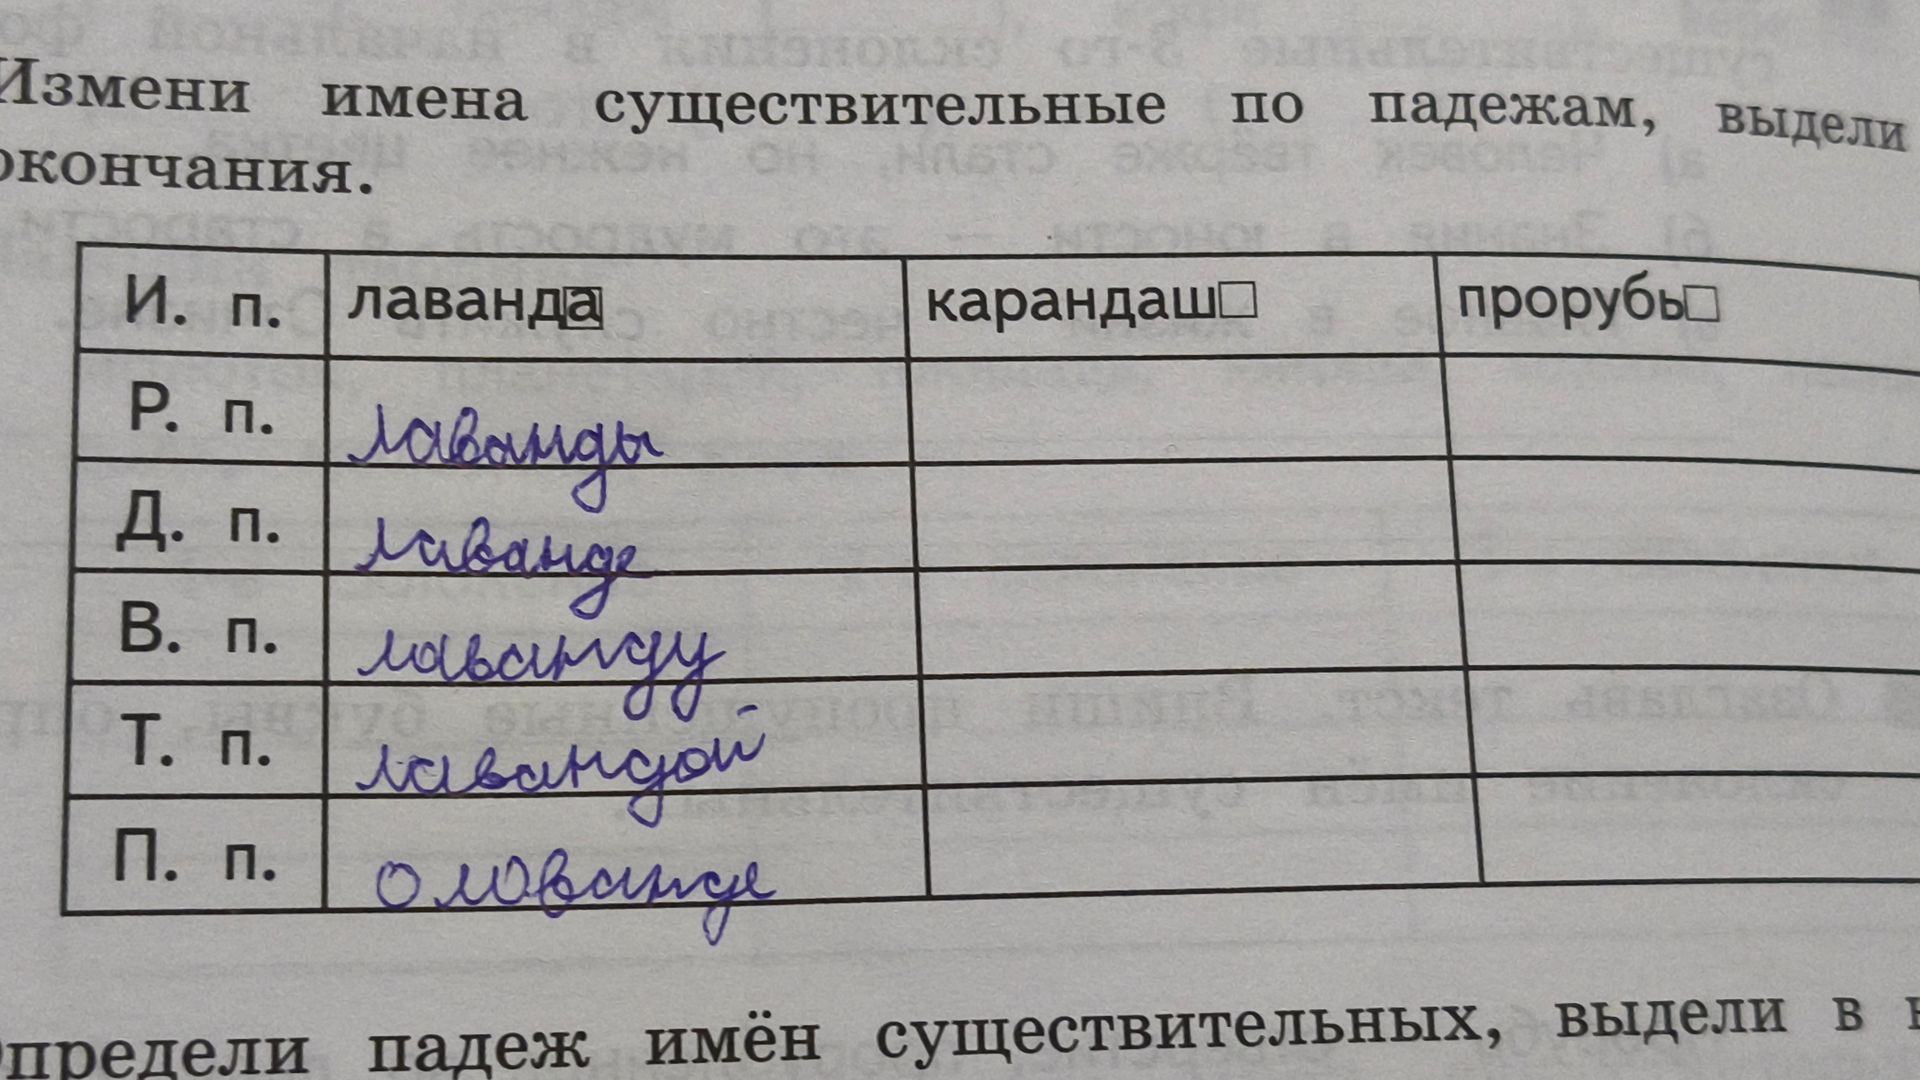 Измени имена существительные по падежам, выдели
окончания.
И. п. лаванда карандаш прорубь
Р. п. лаванды
Д. п. лаванде
В. п. лаванду
Т. п. лавандой
П. п. о лаванде
Определи падеж имён существительных, выдели в н